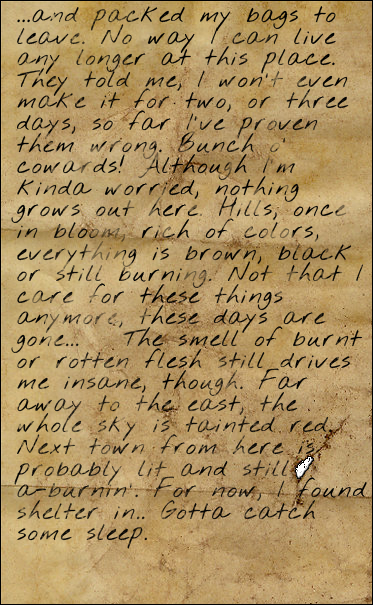 ...and packed my bags to
leave. No way I can live
any longer at this place.
They told me, I won't even
make it for two, or three
days, so far I've proven
them wrong. Bunch o'
cowards! Although I'm
kinda worried, nothing
grows out here. Hills, once
in bloom, rich of colors,
everything is brown, black
or still burning. Not that I
care for these things
anymore, these days are
gone... The smell of burnt
or rotten flesh still drives
me insane, though. Far
away to the east, the
whole sky is tainted red.
Next town from here is
probably lit and still
a-burnin'. For now, I found
shelter in.. Gotta catch
some sleep.